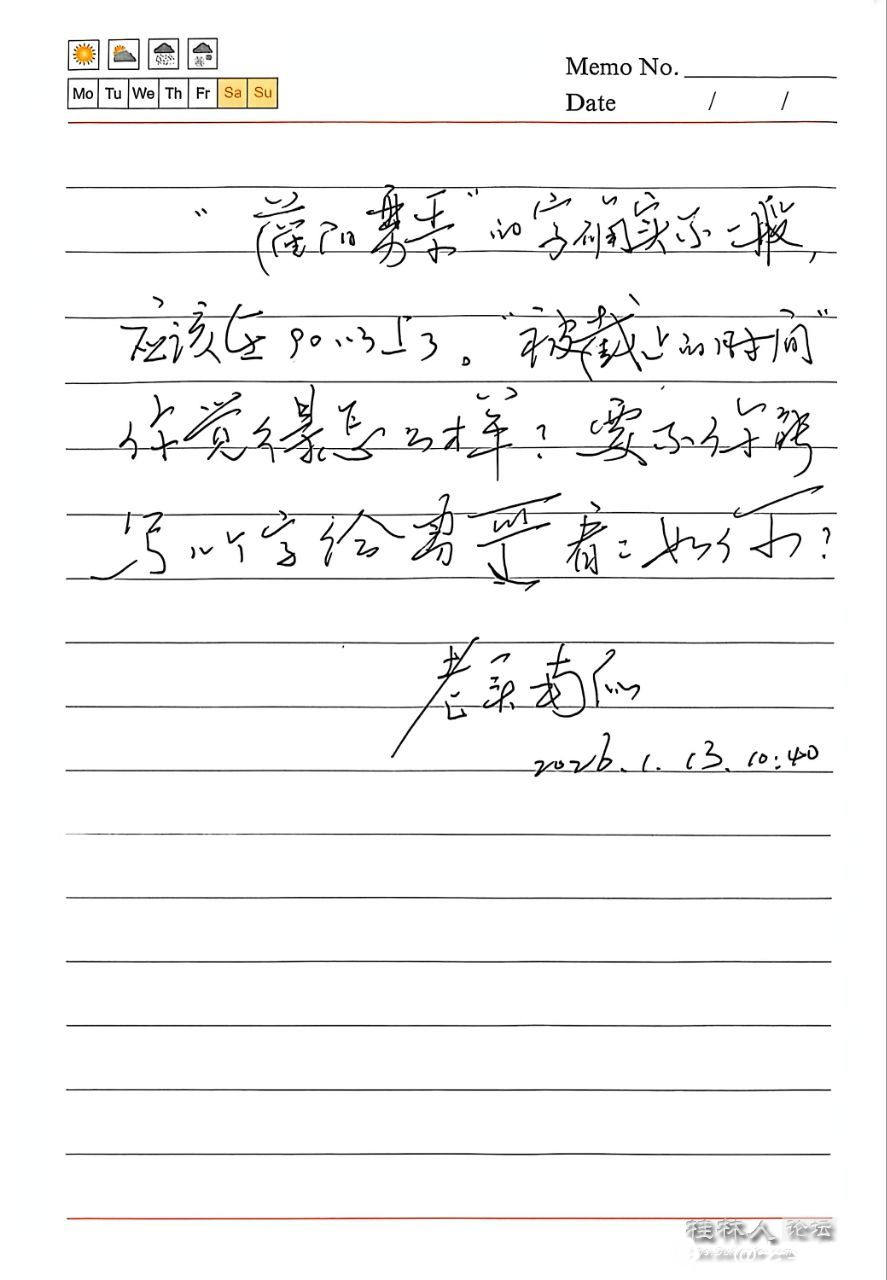 Mo Tu We Th Fr Sa Su
Memo No.
Date / /
“灌阳雾乐”的字确实不一般，
应该在90以上了。“被截止的时间”
你觉得怎么样？要不你能
写几个字给看看如何？
老朱
2026.1.13.10:40
桂林人论坛